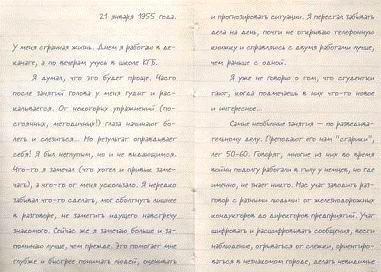 21 января 1955 года.
У меня странная жизнь. Днем я работаю в де-
канате, а по вечерам учусь в школе КГБ.
Я думал, что это будет проще. Часто
после занятий голова у меня гудит и рас-
калывается. От некоторых упражнений (по-
стоянных, методичных!) глаза начинают бо-
леть и слезиться... Но результат оправдывает
себя! Я был неглупым, но и не выдающимся.
Что-то я замечал (что хотел и привык заме-
чать), а что-то от меня ускользало. Я нередко
забывал что-то сделать, мог сболтнуть лишнее
в разговоре, не заметить идущего навстречу
знакомого. Сейчас же я замечаю больше и за-
поминаю лучше, чем прежде. Это помогает мне
глубже и быстрее понимать людей, оценивать
и прогнозировать ситуации. Я перестал забывать
дела на день, почти не открываю телефонную
книжку и справляюсь с двумя работами лучше,
чем раньше с одной.
Я уже не говорю о том, что студентки
тают, когда подмечаешь в них что-то новое
и интересное...
Самые необычные занятия - по разведыва-
тельному делу. Преподают его нам "старики",
лет 50-60. Говорят, многие из них во время
войны подолгу работали в тылу у немцев, но где
именно, не знает никто. Нас учат заводить раз-
говор с разными людьми: от железнодорожных
кондукторов до директоров предприятий. Учат
шифровать и расшифровывать сообщения, вести
наблюдение, отрываться от слежки, ориентиро-
ваться в незнакомом городе, делать невидимые